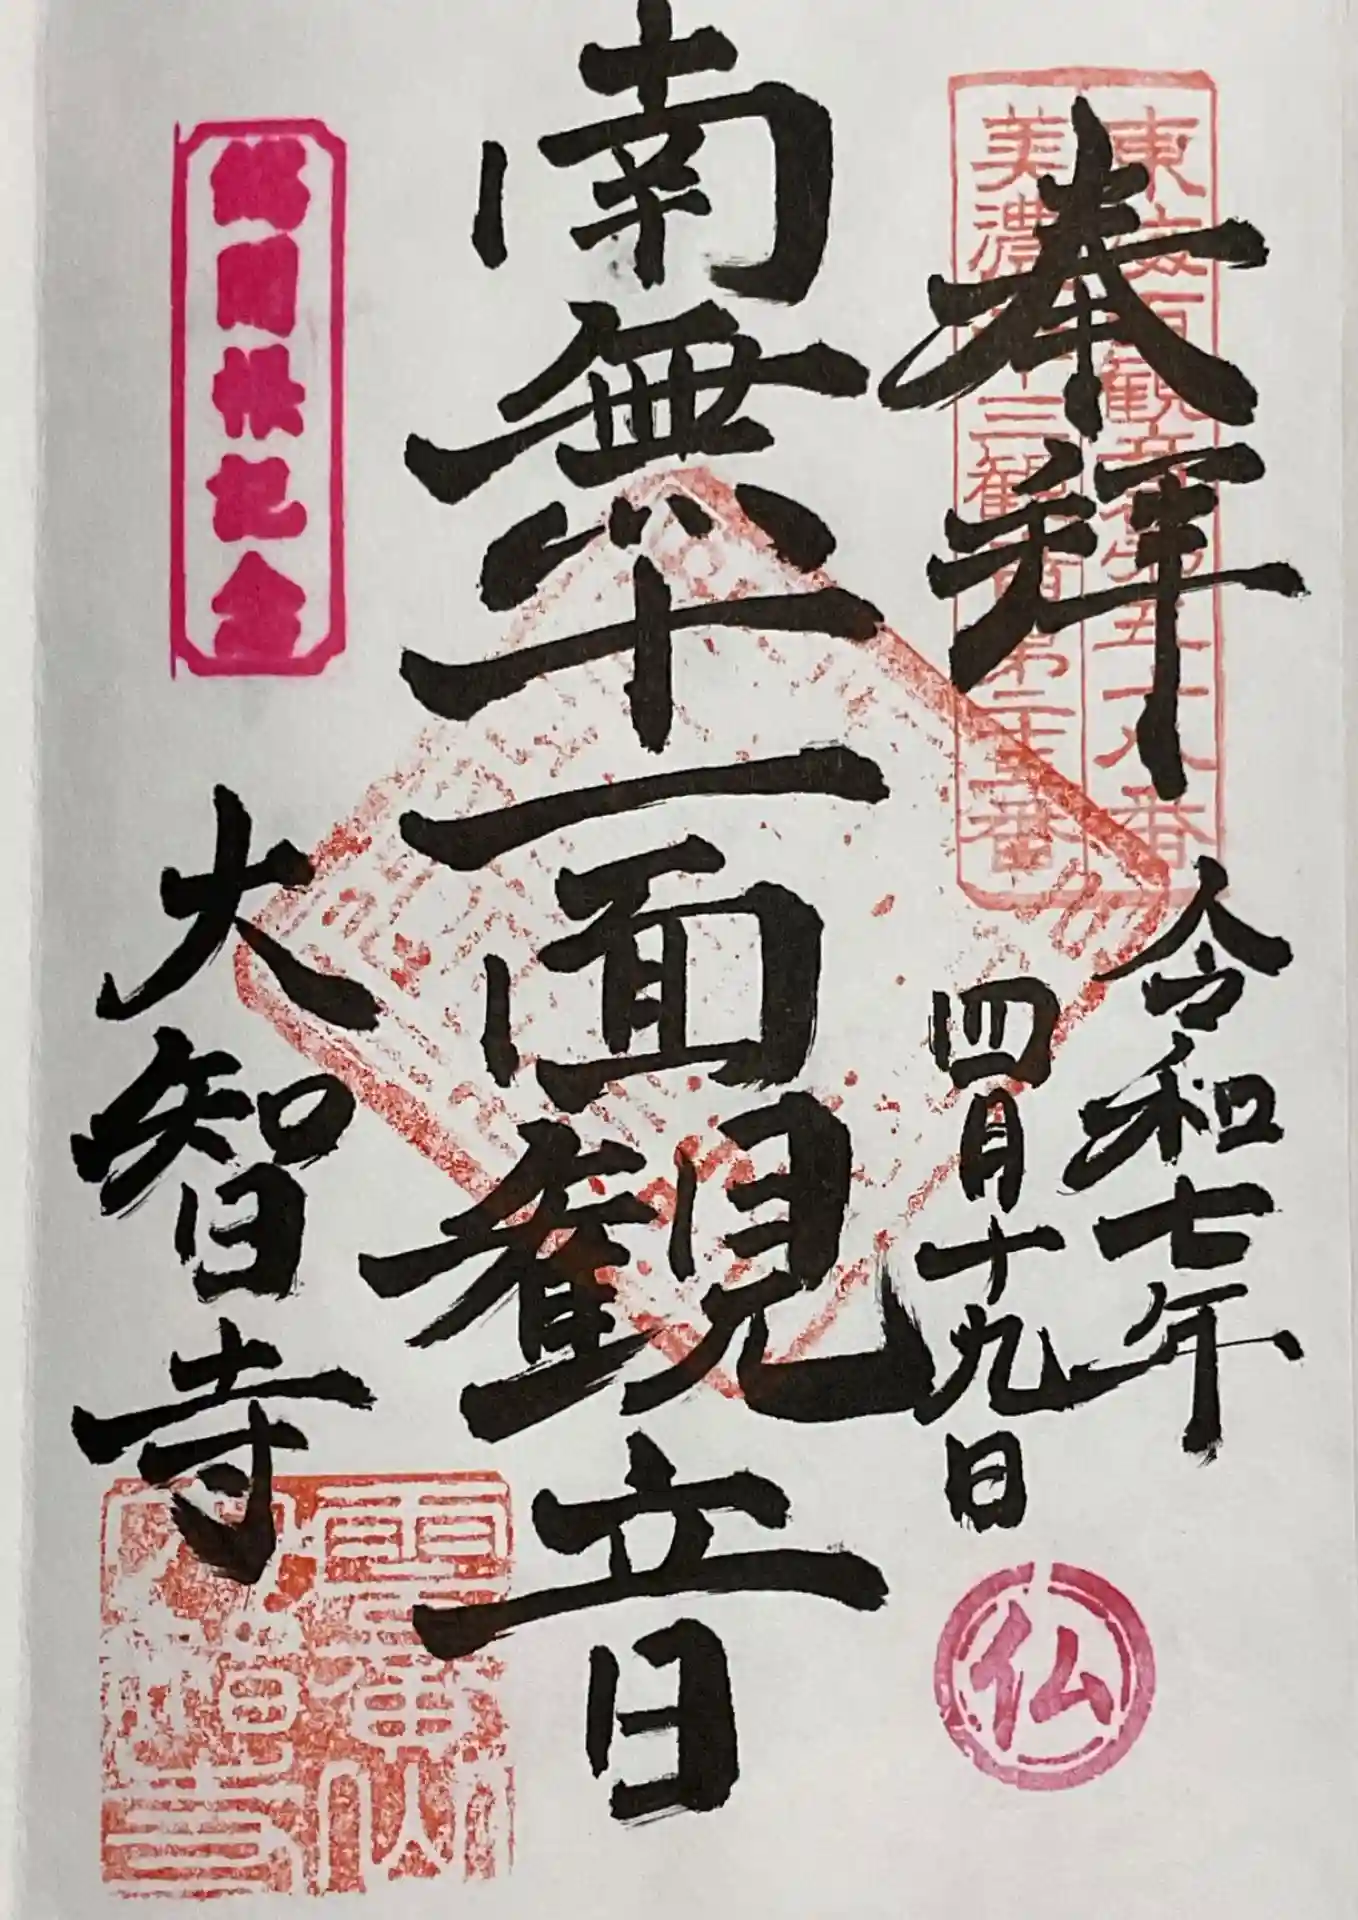 奉拝
東海百観音第五十八番
美濃三十三観音第二十五番
令和七年
四月十九日
仏
南無十一面観音
総開帳記念
大智寺